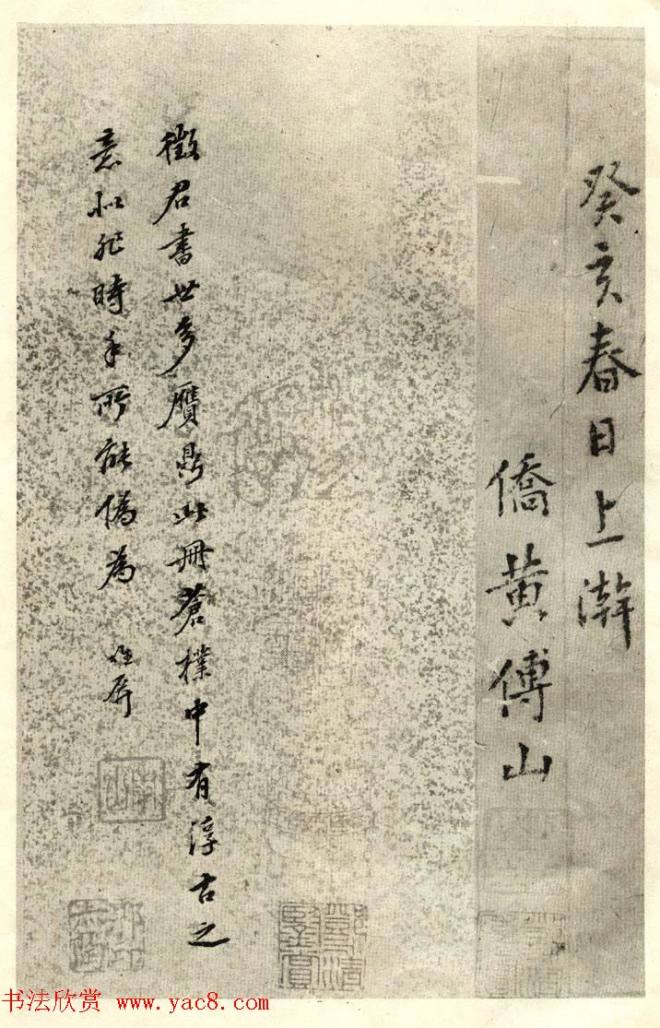 癸亥春日上澣
僑黃傅山
徵君書世多贋鼎此冊蒼樸中有淳古之
意似非時手所能偽為
南山
书法欣赏 www.yac8.com